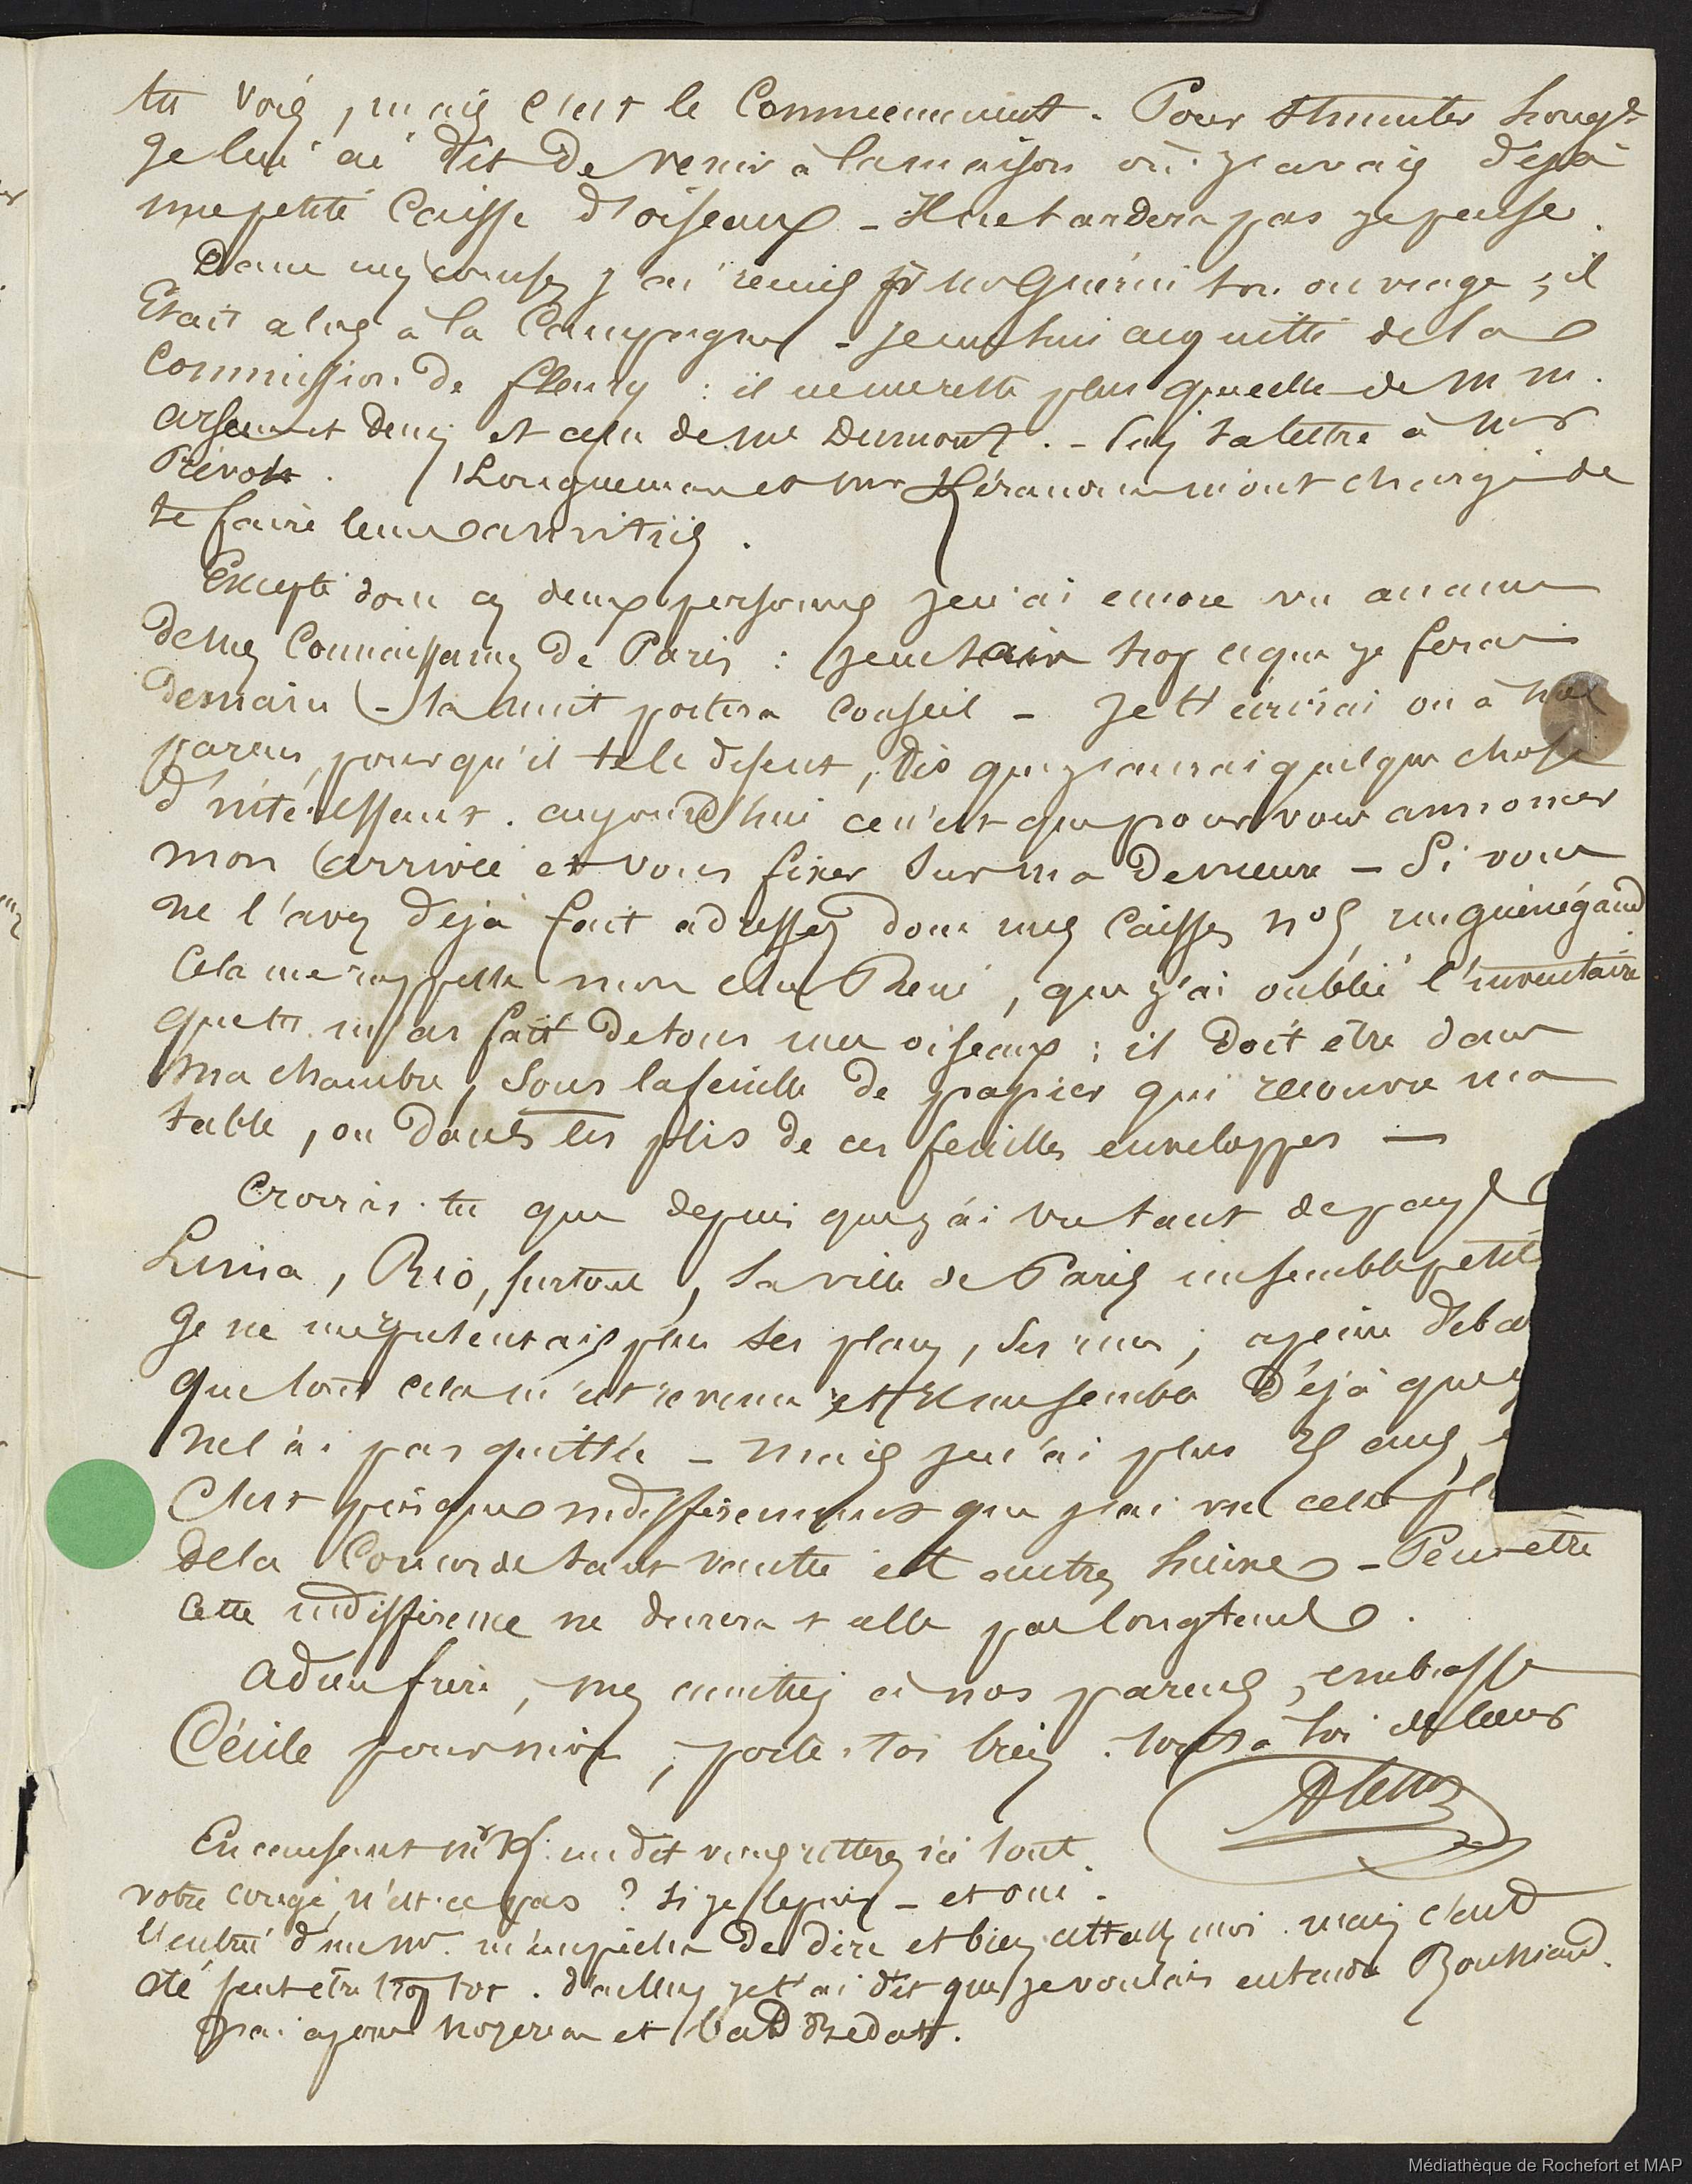 tu vois, mais c'est le commencement. Pour stimuler
Je lui ai dit de venir à la maison où j'avais déjà
une petite caisse d'oiseaux - Il ne tardera pas je pense.
Dans mes courses j'ai remis à Mr Guérin ton ouvrage ; il
Etait alors à la Campagne - je me suis acquitté de la
Commission de Fleury : il ne me reste plus que celle de M M.
et celle de Mr Dumont. - ta lettre à Mr
Prévost. et Mr m'ont chargé de
te faire leurs amitiés.
Excepté donc ces deux personnes je n'ai encore vu aucune
de mes Connaissances de Paris : je ne sais trop ce que je ferai
demain - la nuit portera conseil - je t'écrirai ou à nos
parens, pour qu'il te le disent, dès que j'aurai quelque chose
d'intéressant. aujourd'hui ce n'est que pour vous annoncer
mon arrivée et vous fixer sur ma demeure - Si vous
ne l'avez déjà fait adressez donc mes caisses rue guénégaud
Cela me rappelle mon cher René, que j'ai oublié l'inventaire
que tu m'as fait de tous mes oiseaux : il doit être dans
ma chambre, sous la feuille de papier qui recouvre ma
table, ou dans les plis de ces feuilles enveloppes —
Croirais-tu que depuis que j'ai vu tant de pays
Lima, Rio, surtout, la ville de Paris me semble petite
Je ne me présentais plus ses places, ses rues ; a peine
que tout cela m'est revenu et il me semble déjà que
ne l'ai pas quittée - mais je n'ai plus ans,
C'est presque indifféremment que j'ai vu cette
de la Concorde tant vantée et autres lieux - Peut-être
cette indifférence ne durera t elle pas longtems.
adieu frère, mes amitiés à nos parens, embrasse
Cécile pour moi, porte-toi bien. tout à toi de coeur
En causant Mr me dit vous resterez ici tout
votre congé, n'est-ce pas ? Si je le puis - et oui.
l'entrée d'un Mr. m'empêcha de dire et bien moi. mais c'eut
été peut être trop tot. d'ailleurs je t'ai dit que je voulais entendre
j'ai et